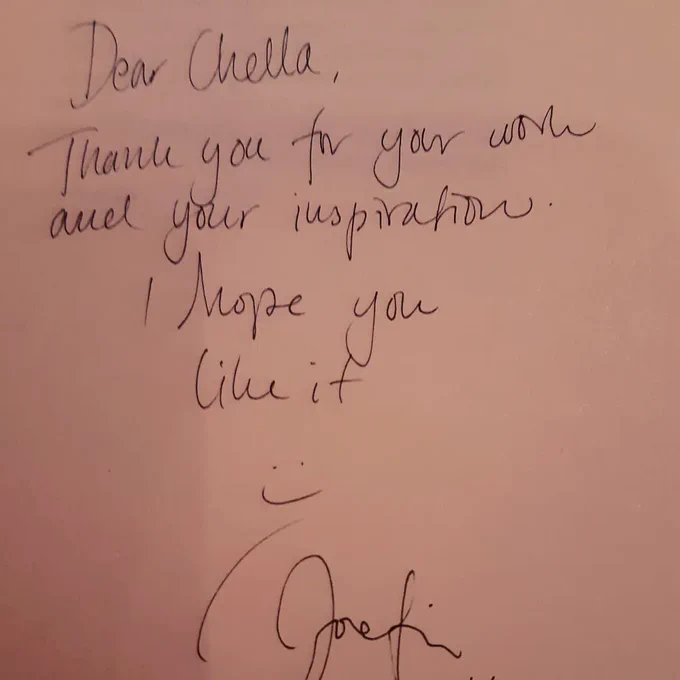 Dear Chella,
Thank you for your work
and your inspiration.
I hope you
like it
:)
Josefin